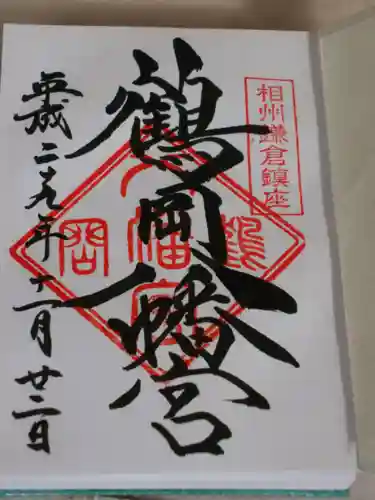 相州鎌倉鎮座
鶴岡八幡宮
平成二十九年十一月廿二日